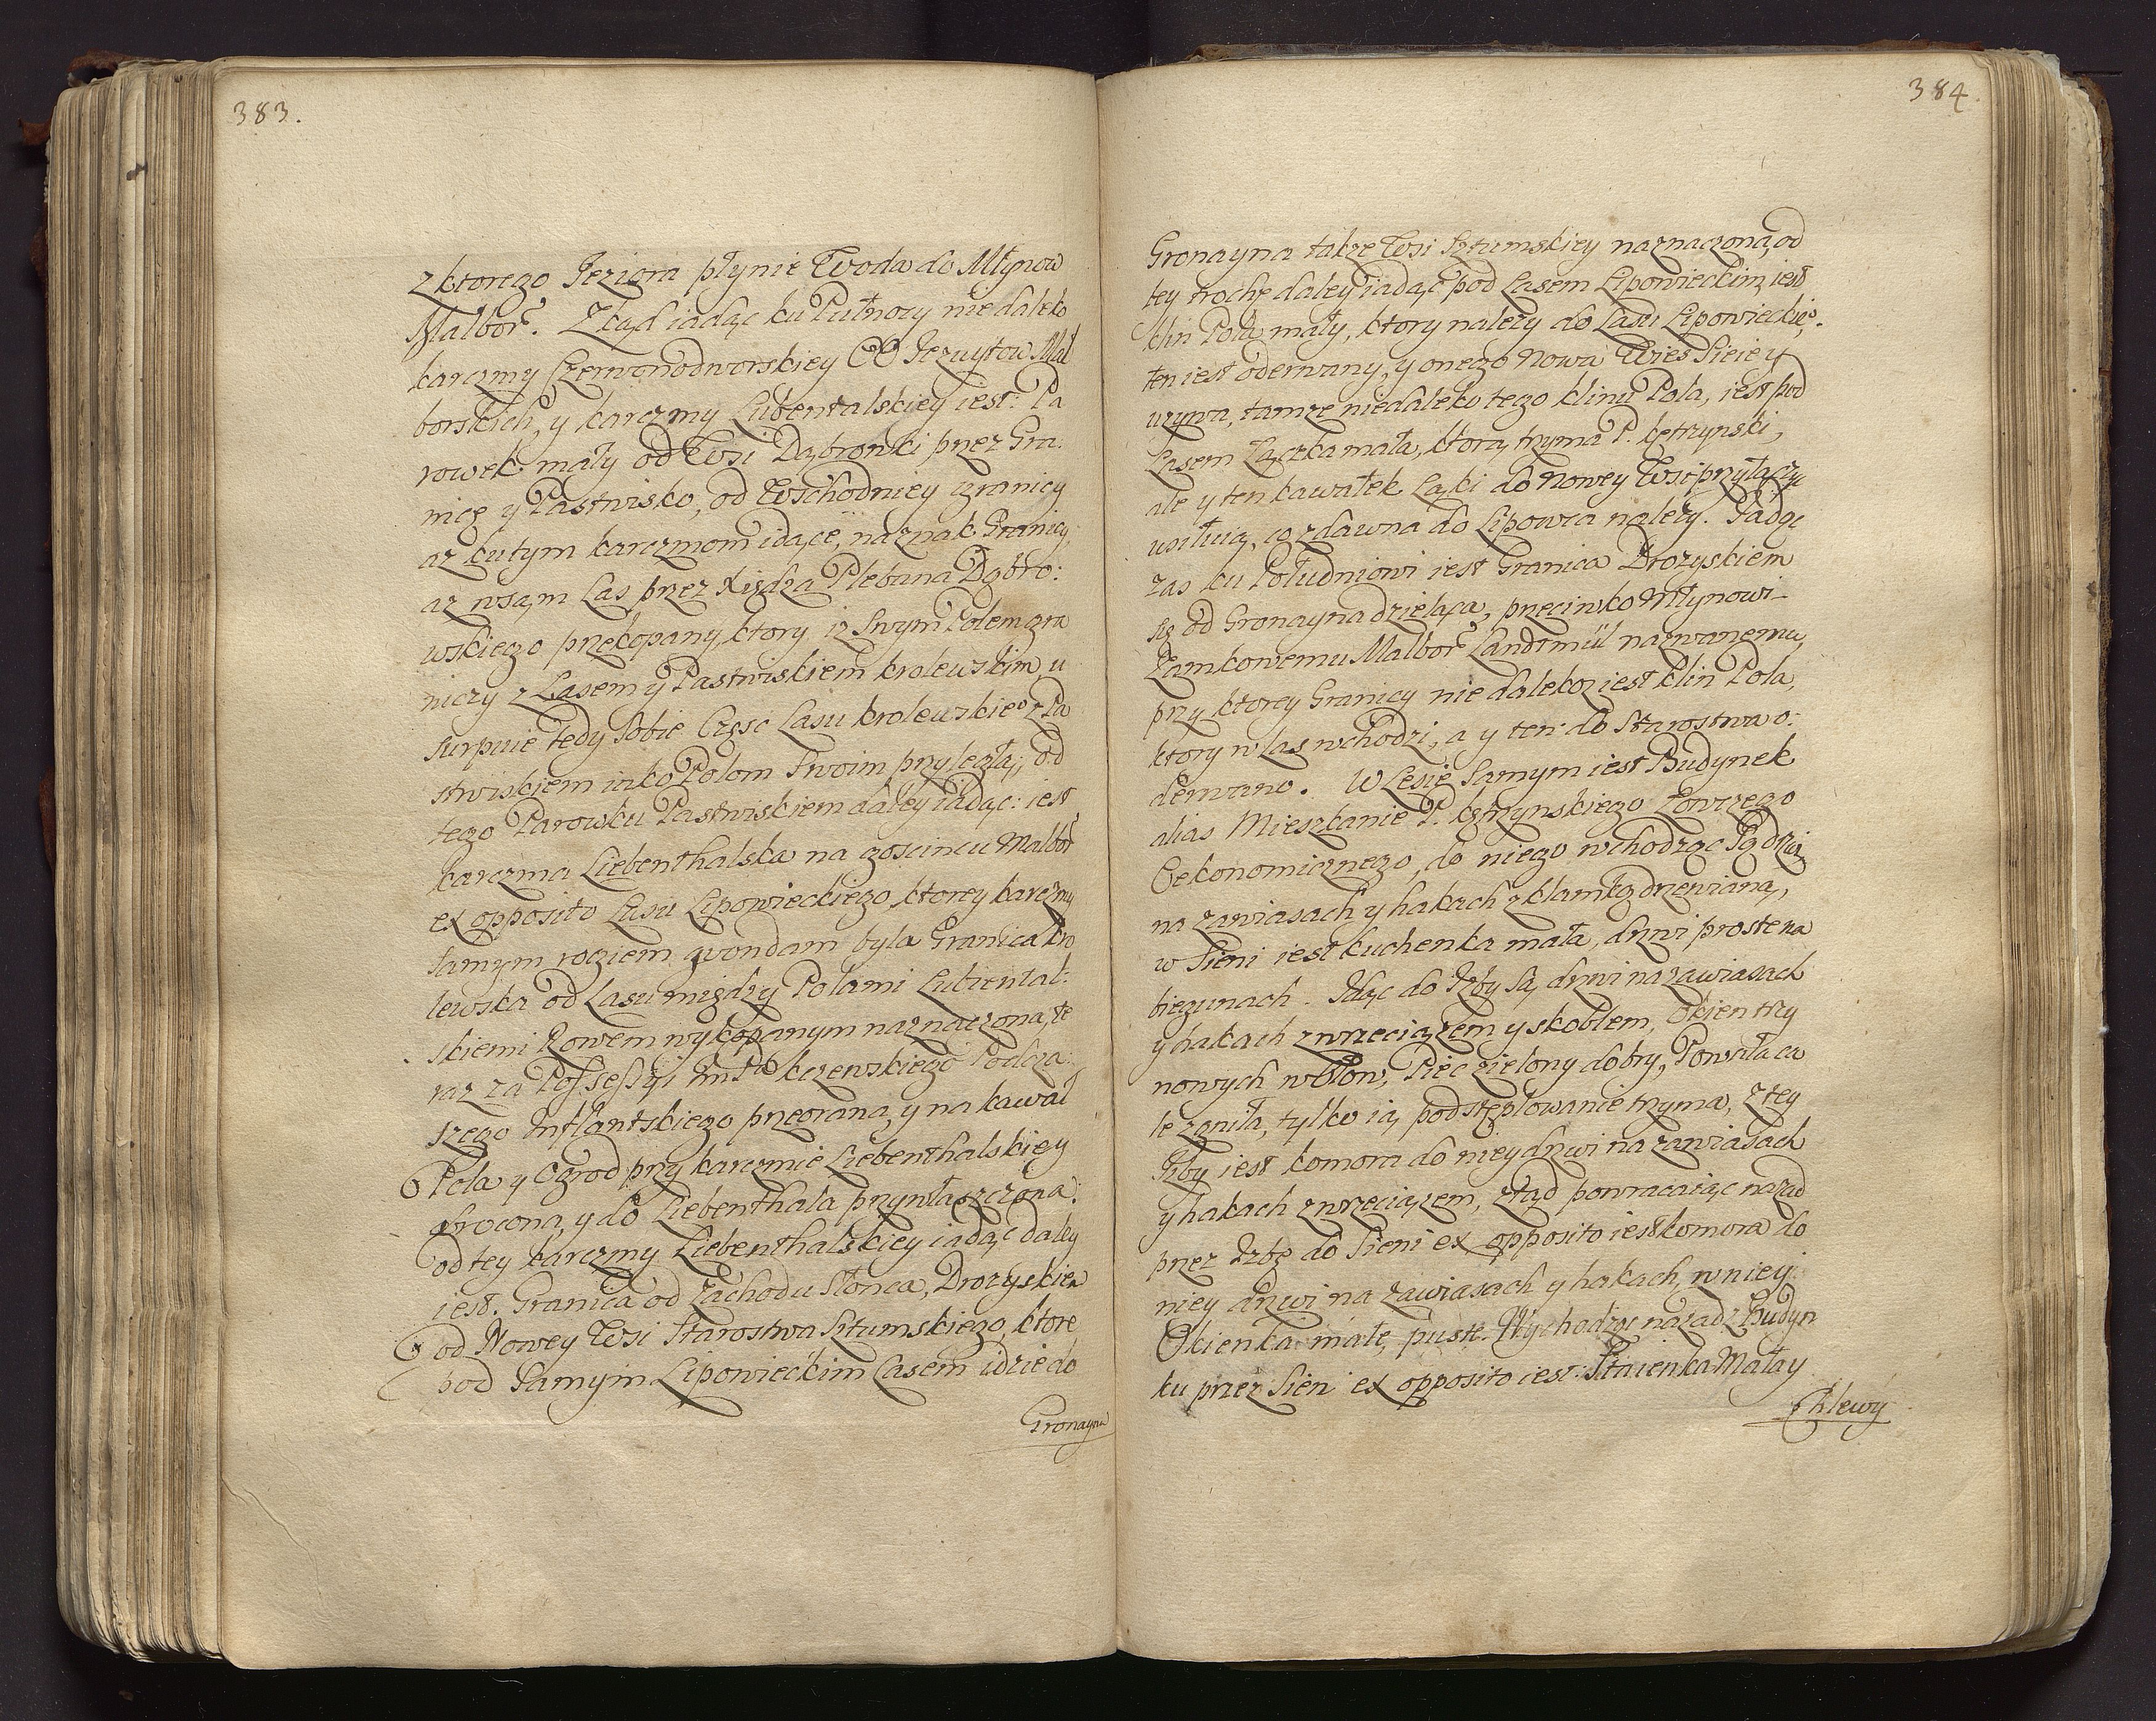 383.
z ktorego Jeziora płynie Woda do Młynow
Malbor. Ztąd iadąc ku Pułnocy niedaleko
karczmy Czerwonodworskiey OO Jezuytow Mal
borskich, y karczmy Lubentalskiey iest: Pa
rowek mały od Wsi Dąbrowki przez Gra:
nicę y Pastwisko, od Wschodniey granicy
az ku tym karczmom idące, na znak Granicy,
az w sam Las przez Xiędza Plebana Dąbro:
wskiego przekopany, ktory iz Swym Polem gra
niczy z Lasem y Pastwiskiem krolewskim, u
surpuie tedy Sobie Część Lasu krolewskie° z Pa
stwiskiem iako Polom Swoim przyległą, od
tego Parowku Pastwiskiem daley iadąc: iest
karczma Liebenthalska na goscincu Malbor
ex opposito Lasu Lipowieckiego, ktorey karczmy
samym rogiem quondam była Granica kro
lewska od Lasu między Polami Lubiental:
skiemi Rowem wykopanym naznaczona, te
raz za Possessyi kczewskiego Podcza
szego Inflantskiego przeorana, y na kawał
Pola y Ogrod przy karczmie Liebenthalskiey
obrocona, y do Liebenthala przywłaszczona:
od tey karczmy Liebenthalskiey iadąc daley
iest. Granica od Zachodu Słonca, Drozyskiem
od Nowey Wsi Starostwa Sztumskiego, ktore
pod Samym Lipowieckim Lasem idzie do
Gronayna
384
Gronayna takze Wsi Sztumskiey naznaczona, od
tey trochę daley iadąc pod Lasem Lipowieckim, iest
klin Pola mały, ktory nalezy do Lasu Lipowieckie°.
ten iest oderwany, y onego Nowa Wies Sieie y
uzywa, tamze niedaleko tego klinu Pola, iest pod
Lasem Łączka mała, ktorą trzyma P. kętrzynski,
ale y ten kawałek Łąki do Nowey Wsi przyłączyc
usiłuią, co zdawna do Lipowca nalezy. Jadąc
zas ku Południowi iest Granica Drozyskiem
się od Gronayna dzieląca, przeciwko Młynowi
Zamkowemu Malbor Landtmül nazwanemu,
przy ktorey Granicy nie daleko iest klin Pola,
ktory w las wchodzi, a y ten do Starostwa o:
derwano. W Lesie Samym iest Budynek
alias Mieszkanie P. kętrzynskiego Łowczego
Oekonomicznego, do niego wchodząc Są drzwi
na zawiasach y hakach z klamką drzewianą,
w Sieni iest kuchenka mała, drzwi proste na
biegunach. Idąc do Izby Są drzwi na zawiasach
y hakach z wrzeciązem y skoblem, Okien trzy
nowych w ołow, Piec zielony dobry, Powała ca
le zgniła, tylko ią podstęplowanie trzyma, z tey
Izby iest komora do niey drzwi na zawiasach
y hakach z wrzeciązem, ztąd powracaiąc nazad
przez Izbę do Sieni ex opposito iest komora do
niey drzwi na zawiasach y hakach, w niey
Okienka małe, puste. Wychodząc nazad z Budyn
ku przez Sień ex opposito iest: Staienka Mała y
Chlewy